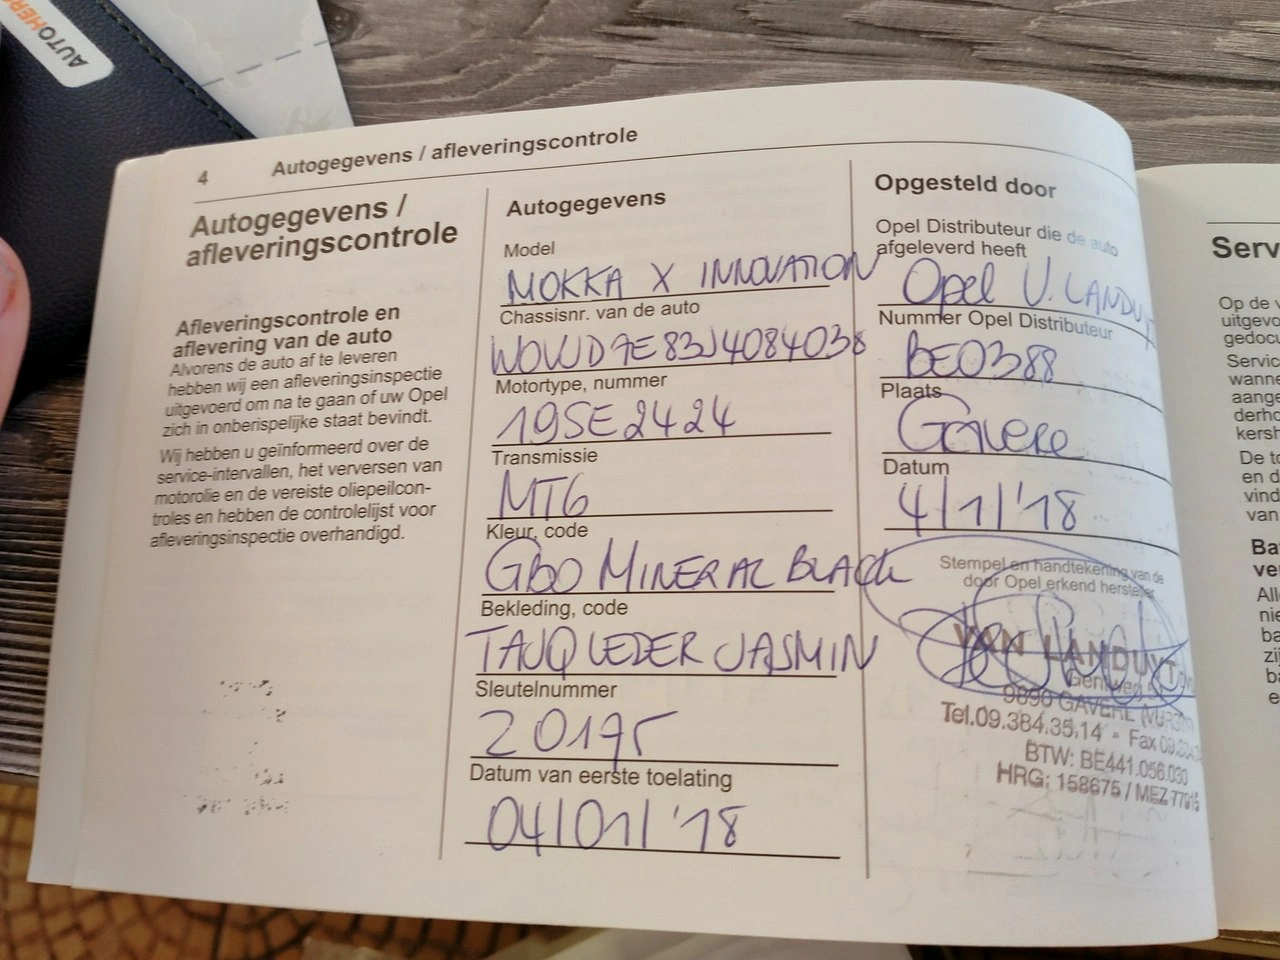 AUTOHER
4 Autogegevens / afleveringscontrole
Autogegevens /
afleveringscontrole
Afleveringscontrole en
aflevering van de auto
Alvorens de auto af te leveren
hebben wij een afleveringsinspectie
uitgevoerd om na te gaan of uw Opel
zich in onberispelijke staat bevindt.
Wij hebben u geïnformeerd over de
service-intervallen, het verversen van
motorolie en de vereiste oliepeilcon-
troles en hebben de controlelijst voor
afleveringsinspectie overhandigd.
Autogegevens
Model
MOKKA X INNOVATION
Chassisnr. van de auto
W0VJD7E83J4084038
Motortype, nummer
19SE2424
Transmissie
MT6
Kleur, code
GB0 MINERAL BLACK
Bekleding, code
TAJQ LEDER JASMIN
Sleutelnummer
20195
Datum van eerste toelating
04/01/'18
Opgesteld door
Opel Distributeur die de auto
afgeleverd heeft
Opel V. LANDUY
Nummer Opel Distributeur
BE0388
Plaats
Gavere
Datum
4/1/'18
Stempel en handtekening van de
door Opel erkend hersteller
VAN LANDUYT
9890 GAVERE
Tel.09.384.35.14 - Fax
BTW: BE441.056.030
HRG: 158675 / MEZ
Serv
Op de v
uitgevo
gedocu
Servic
wanne
aange
derho
kersh
De to
en d
vind
van
Ba
ve
All
nie
ba
zij
ba
e